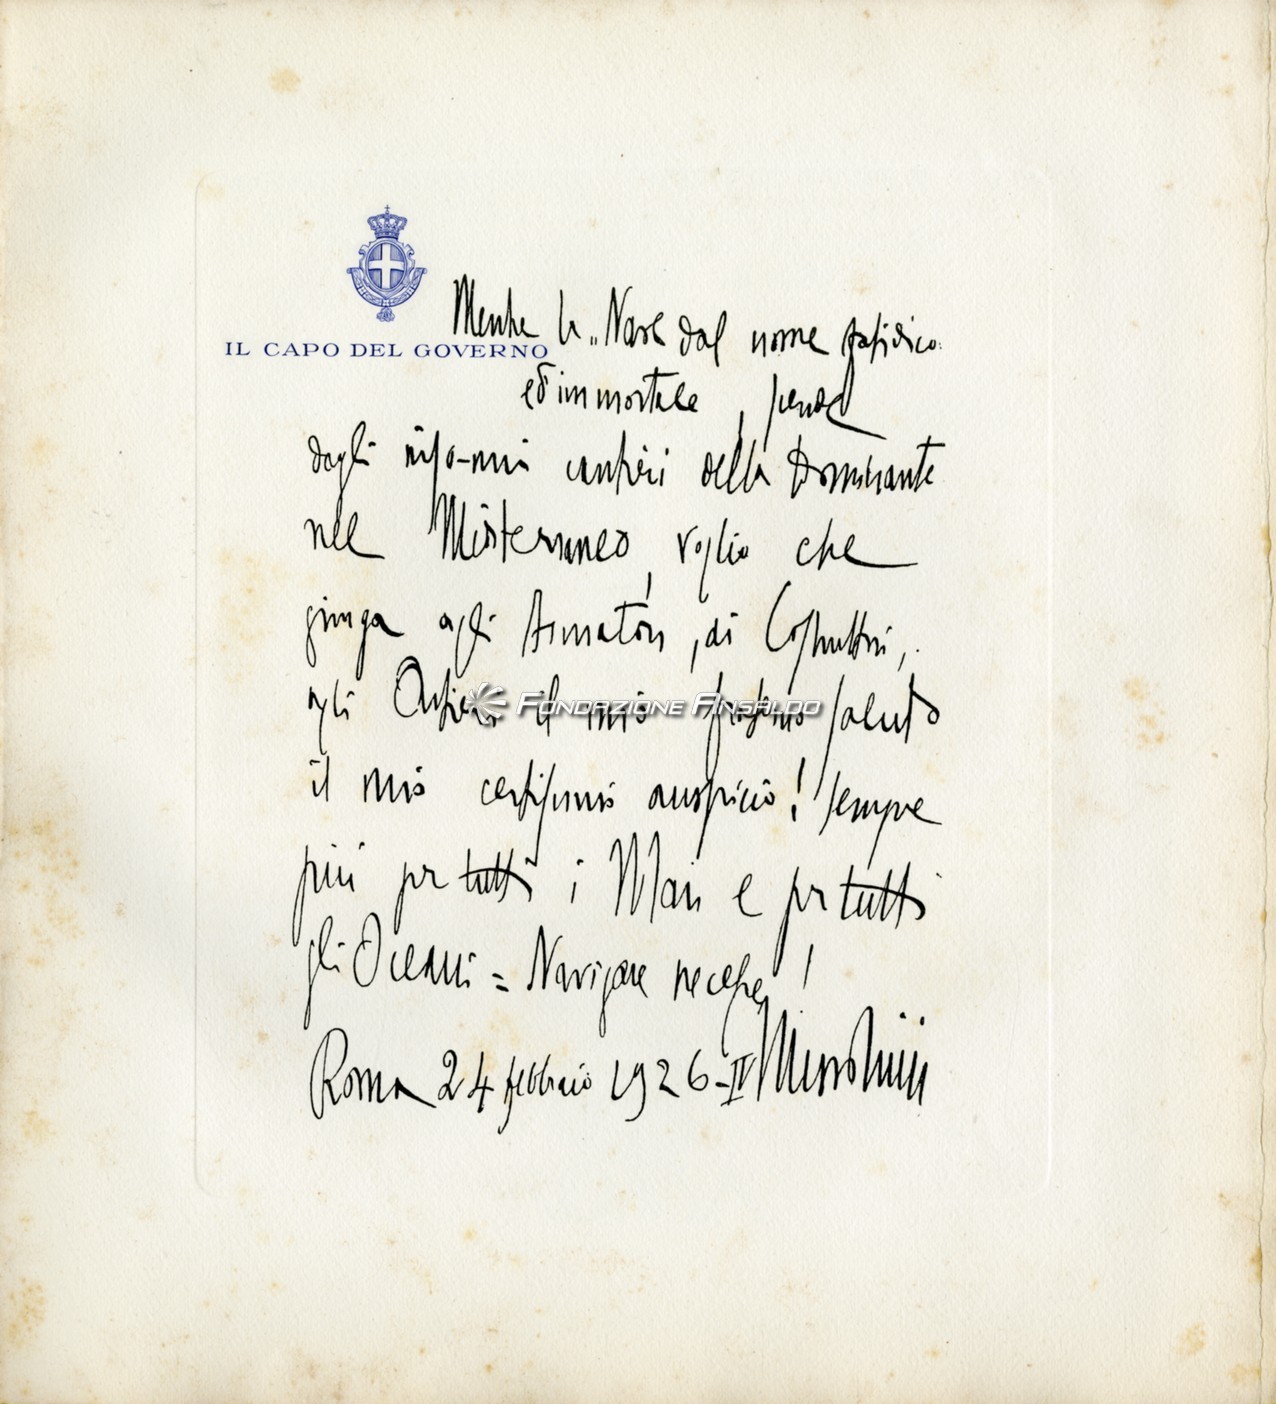 IL CAPO DEL GOVERNO
Mentre la "Nave dal nome fatidico
ed immortale, scende
dagli cantieri della Dominante
nel Mediterraneo, voglio che
giunga agli Armatori, ai Costruttori,
agli Artieri il mio fraterno saluto
il mio certissimo auspicio! Sempre
più per tutti i Mari e per tutti
gli Oceani = Navigare necesse!
Roma 24 febbraio 1926-IV Mussolini
FONDAZIONE ANSALDO